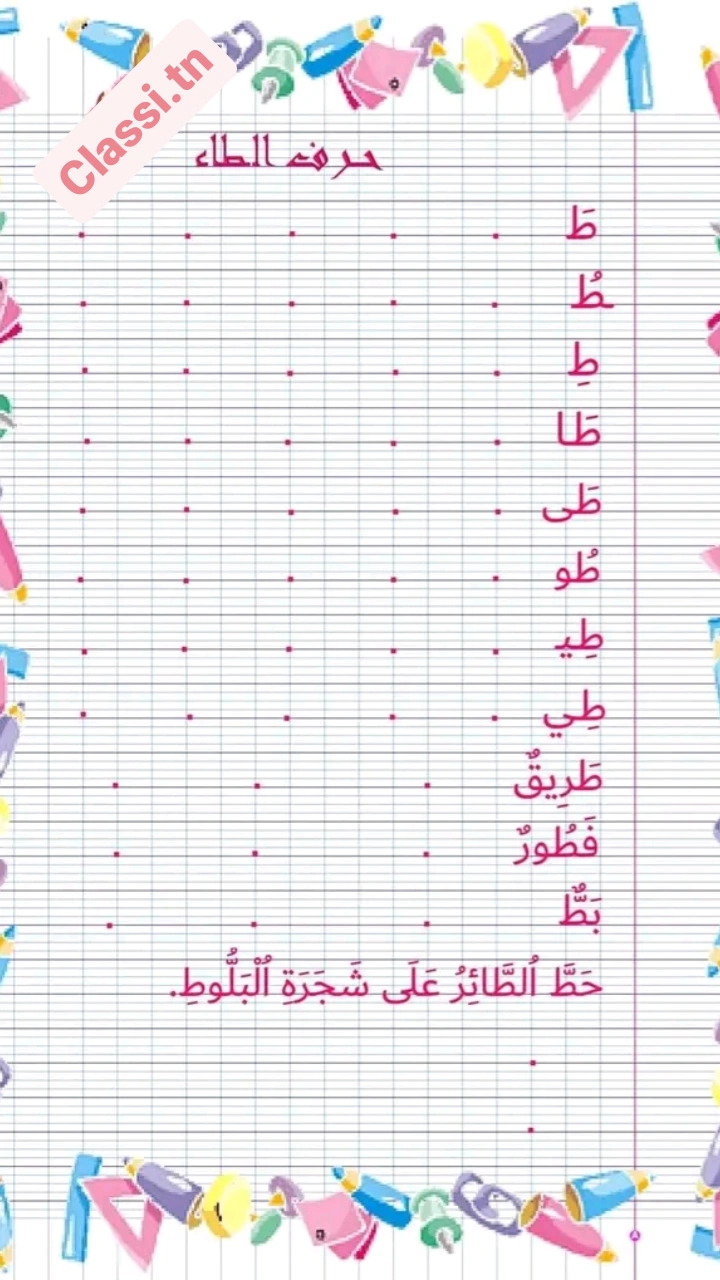 Classi.tn
حرف الطاء
طَ . . . . .
ـطُ . . . . .
طِ . . . . .
طَا . . . . .
طَى . . . . .
طُو . . . . .
طِيـ . . . . .
طِي . . . . .
طَرِيقٌ . . .
فَطُورٌ . . .
بَطٌّ . . .
حَطَّ اُلطَّائِرُ عَلَى شَجَرَةِ اُلْبَلُّوطِ.
.
.